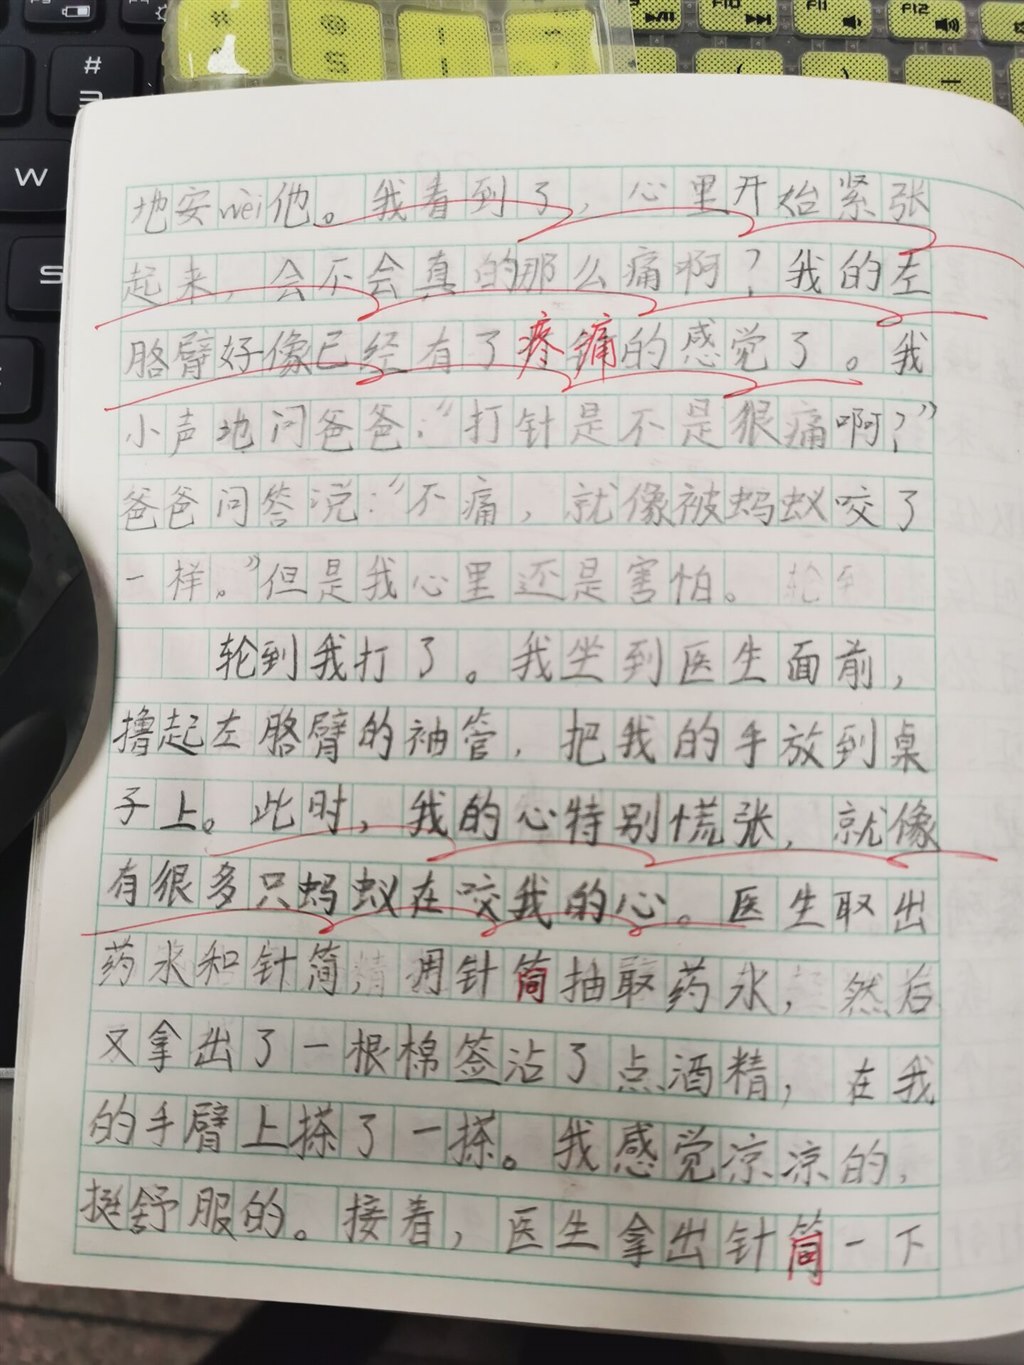 #
W
S
F10
F11
F12
地安wei他。我看到了，心里开始紧张
起来，会不会真的那么痛啊？我的左
胳臂好像已经有了疼痛的感觉了。我
小声地问爸爸：“打针是不是狠痛啊？”
爸爸问答说：“不痛，就像被蚂蚁咬了
一样。”但是我心里还是害怕。
轮到我打了。我坐到医生面前，
撸起左胳臂的袖管，把我的手放到桌
子上。此时，我的心特别慌张，就像
有很多只蚂蚁在咬我的心。医生取出
药水和针筒，用针筒抽取药水，然后
又拿出了一根棉签沾了点酒精，在我
的手臂上搽了一搽。我感觉凉凉的，
挺舒服的。接着，医生拿出针筒一下